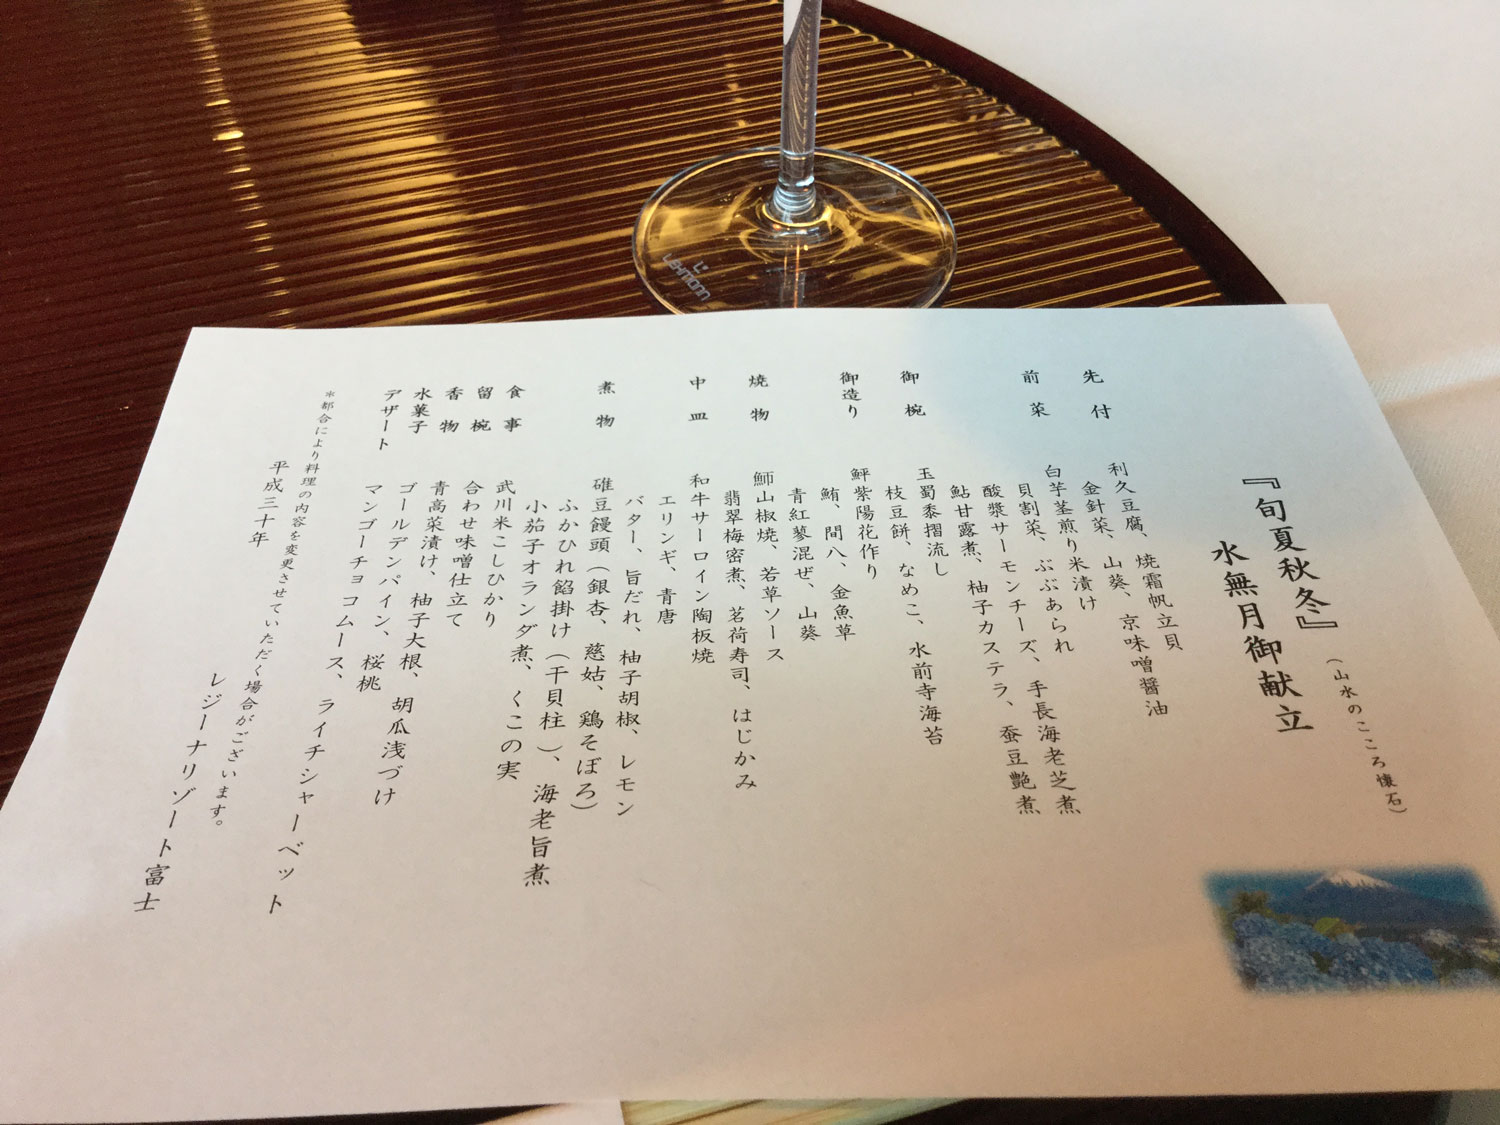 『旬夏秋冬』
(山水のこころ懐石)
水無月御献立
先付
利久豆腐、焼霜帆立貝
金針菜、山葵、京味噌醤油
前菜
白芋茎煎り米漬け
貝割菜、ぶぶあられ
酸漿サーモンチーズ、手長海老芝煮
鮎甘露煮、柚子カステラ、蚕豆艶煮
御椀
玉蜀黍摺流し
枝豆餅、なめこ、水前寺海苔
御造り
鮃紫陽花作り
鮪、間八、金魚草
青紅蓼混ぜ、山葵
焼物
鰤山椒焼、若草ソース
翡翠梅密煮、茗荷寿司、はじかみ
中皿
和牛サーロイン陶板焼
エリンギ、青唐
バター、旨だれ、柚子胡椒、レモン
煮物
碓豆饅頭(銀杏、慈姑、鶏そぼろ)
ふかひれ餡掛け(干貝柱)、海老旨煮
小茄子オランダ煮、くこの実
食事
武川米こしひかり
留椀
合わせ味噌仕立て
香物
青高菜漬け、柚子大根、胡瓜浅づけ
水菓子
ゴールデンパイン、桜桃
デザート
マンゴーチョコムース、ライチシャーベット
*都合により料理の内容を変更させていただく場合がございます。
平成三十年
レジーナリゾート富士
LEHMANN